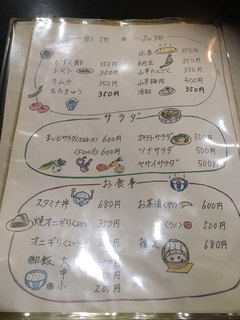 一酢物 ★ 一品物
もずく酢 350円
トマト 350円
キムチ 350円
もろきゅう 350円
出巻 350円
納豆 350円
山芋たんざく 350円
山芋梅肉 400円
冷奴 350円
サラダ
600円
600円
ポテトサラダ 500円
ツナサラダ 500円
ヤサイサラダ 500円
お食事
スタミナ丼 680円
焼オニギリ(2ケ) 350円
オニギリ(2ケ)
御飯 大
中
小 200円
お茶漬 600円
500円
雑炊 680円